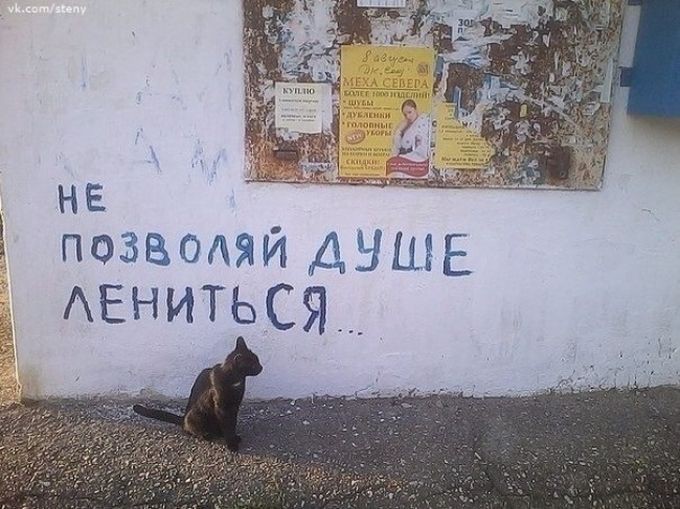 vk.com/steny
8 августа
МЕХА СЕВЕРА
БОЛЕЕ 1000 ИЗДЕЛИЙ!
• ШУБЫ
• ДУБЛЕНКИ
• ГОЛОВНЫЕ
УБОРЫ
СКИДКИ!
КУПЛЮ
НЕ
ПОЗВОЛЯЙ ДУШЕ
ЛЕНИТЬСЯ...